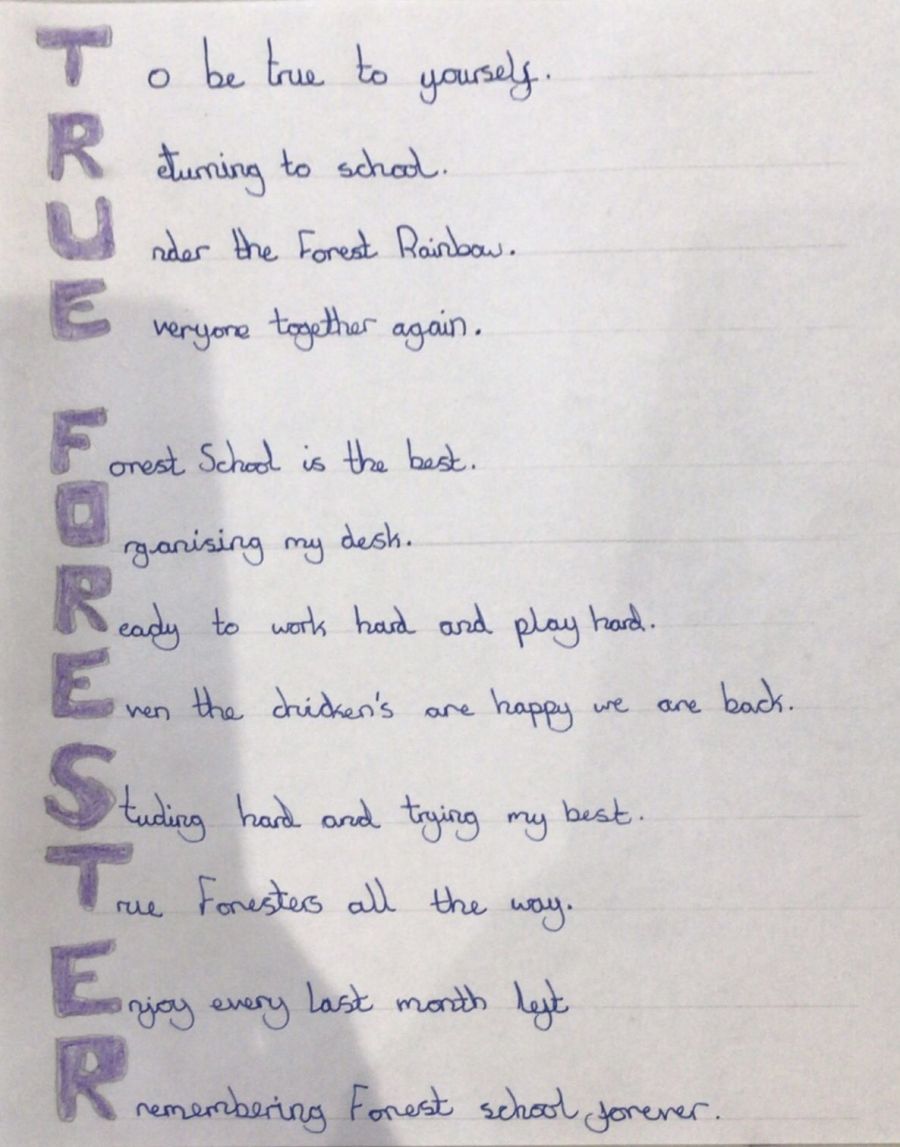 To be true to yourself.
Returning to school.
Under the Forest Rainbow.
Everyone together again.
Forest School is the best.
Organising my desk.
Ready to work hard and play hard.
Even the chicken's are happy we are back.
Studing hard and trying my best.
True Foresters all the way.
Enjoy every last month left
R remembering Forest school forever.